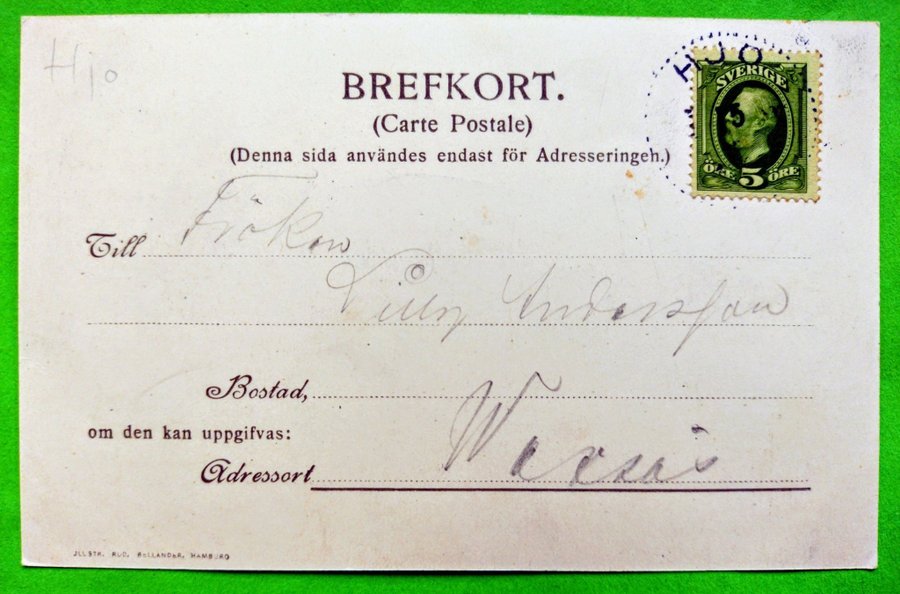 Hjo
HJO
SVERIGE
ÖRE 5 ÖRE
BREFKORT.
(Carte Postale)
(Denna sida användes endast för Adresseringen.)
Till Fröken
Lilly Andersson
Bostad,
om den kan uppgifvas:
Adressort
JLLSTR. RUD. BELLANDER, HAMBURG